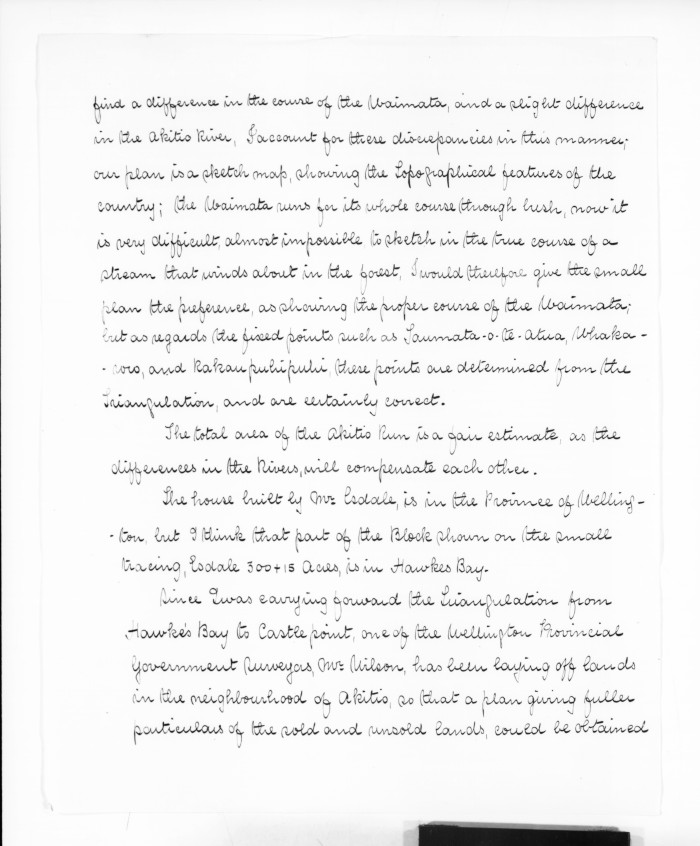 find a difference in the course of the Waimata, and a slight difference
in the Akitio River, I account for these discrepancies in this manner;
our plan is a sketch map, showing the Topographical features of the
country; the Waimata runs for its whole course through bush, now it
is very difficult, almost impossible, to sketch in the true course of a
stream that winds about in the forest, I would therefore give the small
plan the preference, as showing the proper course of the Waimata;
but as regards the fixed points such as Taumata-o-te-Atua, Whaka-
-roro, and Kakaupuhipuhi, these points are determined from the
Triangulation, and are certainly correct.
The total area of the Akitio Run is a fair estimate, as the
differences in the Rivers, will compensate each other.
The house built by Mr. Esdale, is in the Province of Welling-
-ton, but I think that part of the Block shown on the small
tracing, Esdale 300+15 Acres, is in Hawkes Bay.
Since I was carrying forward the Triangulation from
Hawke's Bay to Castle point, one of the Wellington Provincial
Government Surveyors, Mr. Wilson, has been laying off lands
in the neighbourhood of Akitio, so that a plan giving fuller
particulars of the sold and unsold lands, could be obtained